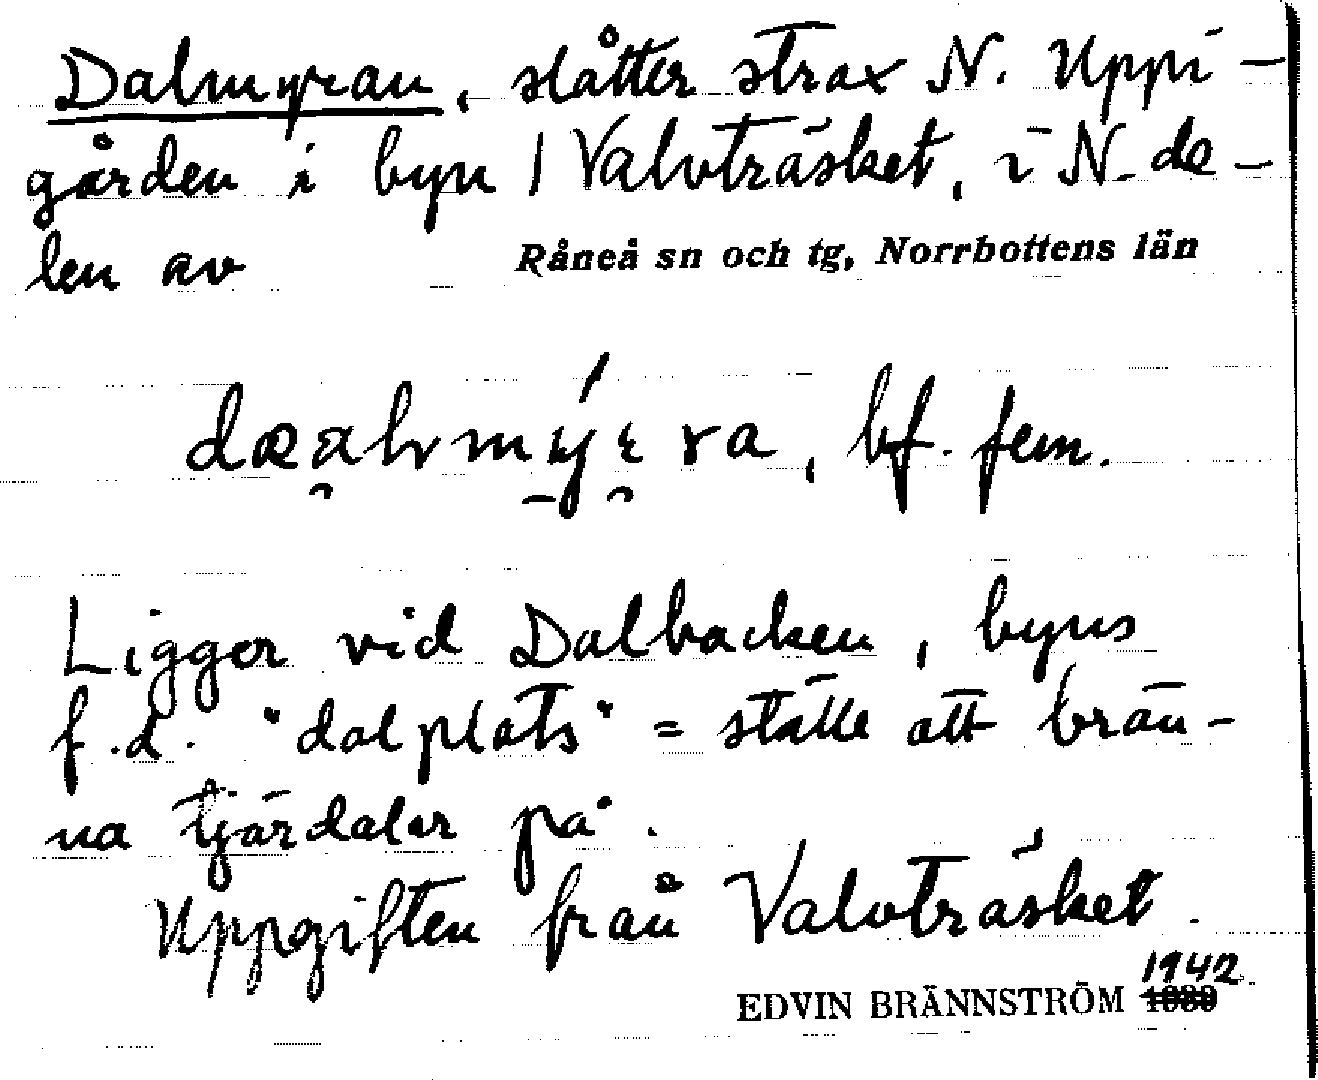 Dalmyran, slåtter strax N. Uppi-
gården i byn / Valvträsket, i N. de-
len av Råneå sn och tg, Norrbottens län
bf. fem.
Ligger vid Dalbacken, byns
f.d. "dalplats" = ställe att brän-
na tjärdalar på.
Uppgiften från Valvträsket.
1942
EDVIN BRÄNNSTRÖM